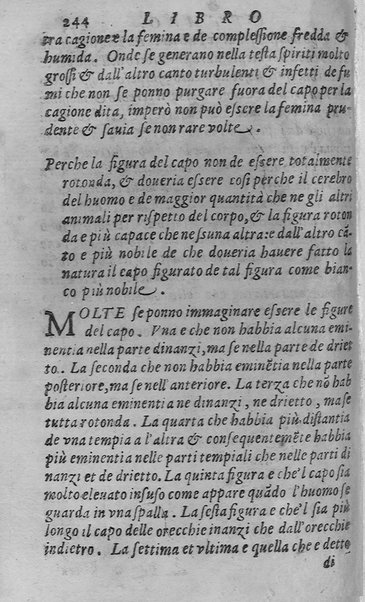 244 LIBRO
tra cagione e la femina e de complessione fredda &
humida. Onde se generano nella testa spiriti molto
grossi & dall'altro canto turbulenti & infetti de fu
mi che non se ponno purgare fuora del capo per la
cagione dita, imperò non può essere la femina pru
dente & savia se non rare volte.
Perche la figura del capo non de essere totalmente
rotonda, & doveria essere cosi perche il cerebro
del huomo e de maggior quantità che ne gli altri
animali per rispetto del corpo, & la figura roton
da e più capace che nessuna altra: e dall'altro cā
to e più nobile de che doueria hauere fatto la
natura il capo figurato de tal figura come bian
co più nobile.
MOLTE se ponno immaginare essere le figure
del capo. Vna e che non habbia alcuna emi
nentia nella parte dinanzi, ma se nella parte de driet
to. La seconda che non habbia eminētia nella parte
posteriore, ma se nell'anteriore. La terza che nō hab
bia alcuna eminentia ne dinanzi, ne drietto, ma se
tutta rotonda. La quarta che habbia più distantia
de vna tempia a l'altra & consequentemēte habbia
più eminentia nelle parti tempiali che nelle parti di
nanzi et de drietto. La quinta figura e che'l capo sia
molto eleuato in suso come appare quādo l'huomo se
guarda in vna spalla. La sesta figura e che'l sia più
longo il capo delle orecchie inanzi che dall'orecchie
indietro. La settima et vltima e quella che e detto
di